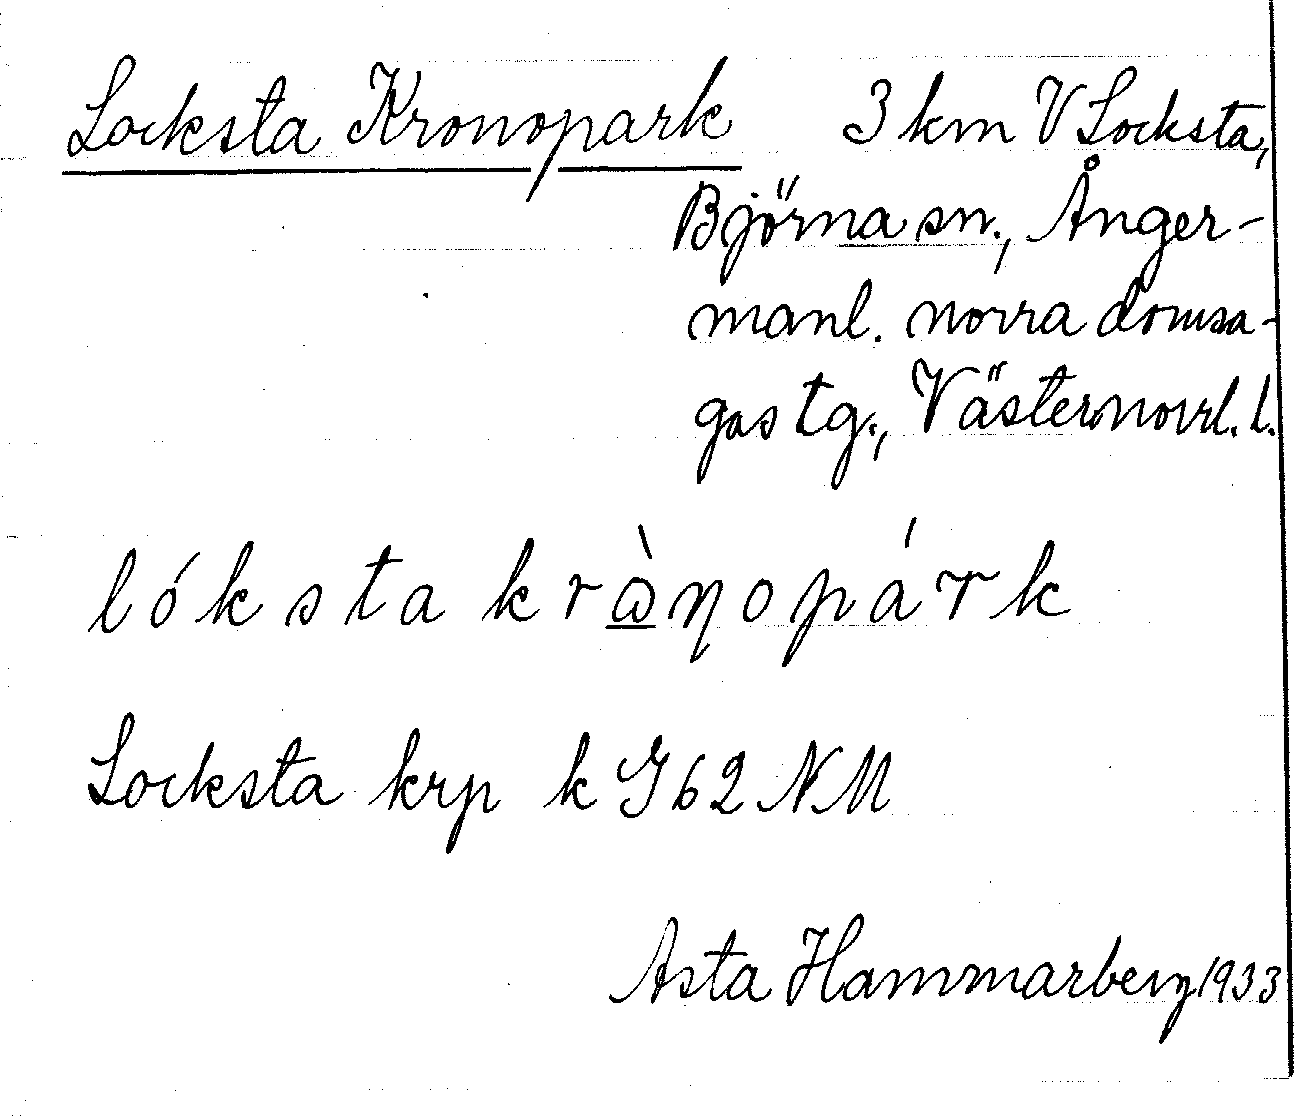 Locksta Kronopark 3 km V Locksta,
Björna sn., Ånger-
manl. norra domsa-
gas tg., Västernorrl. l.
lóksta kròn̡opárk
Locksta krp k J62 NM
Asta Hammarberg 1933